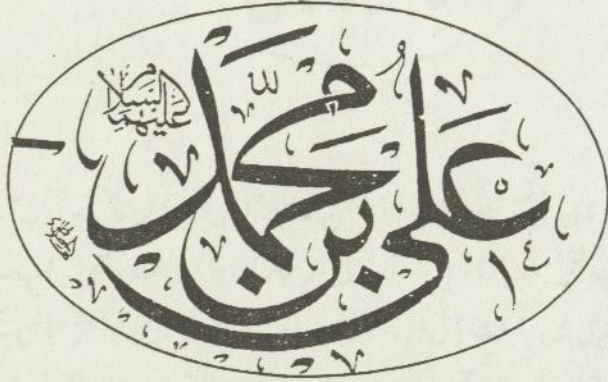 علی بن محمد
علیهما السلام